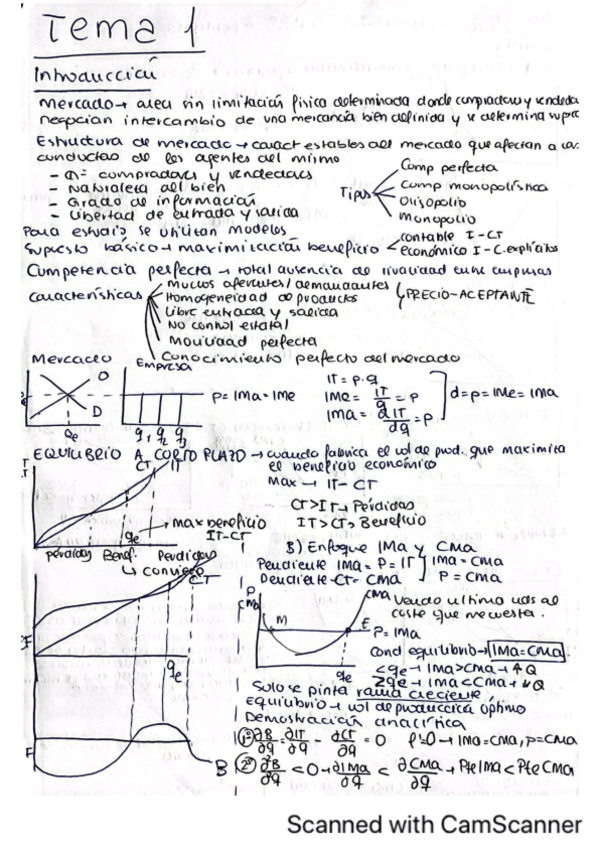 Tema 1
Introducción
mercado → area sin limitación física determinada donde compradores y vended
negocian intercambio de una mercancía bien definida y se determina su prec
Estructura de mercado → caract estables del mercado que afectan a la
conducta de los agentes del mismo
- nº compradores y vendedores
- Naturaleza del bien
- Grado de información
- Libertad de entrada y salida
Tipos
Comp perfecta
Comp monopolística
Oligopolio
monopolio
Para estudio se utilizan modelos
Supuesto básico → maximización beneficio
contable I-CT
económico I-C.explícitos
Competencia perfecta → total ausencia de rivalidad entre empresas
características
Muchos oferentes/demandantes
Homogeneidad de productos
Libre entrada y salida
No control estatal
Movilidad perfecta
Conocimiento perfecto del mercado
PRECIO-ACEPTANTE
Mercado
EMPRESA
O
D
qe
q1 q2 q3
P = IMa = IMe
IT = p·q
IMe = IT/q = P
IMa = dIT/dq = P
d = p = IMe = IMa
EQUILIBRIO A CORTO PLAZO → cuando fabrica el vol de prod. que maximiza
el beneficio económico
Max → IT - CT
CT > IT → Pérdidas
IT > CT → Beneficio
CT
IT
qe
→ max beneficio
IT-CT
Pérdidas Benef. Perdidas
↳ convexo
CT
B) Enfoque IMa y CMa
Pendiente IMa = P = IT
Pendiente CT = CMa
IMa = CMa
P = CMa
P
CMa
M
E
CMa
P = IMa
qe
Vendo ultimo uds al
coste que me cuesta.
Cond equilibrio → IMa = CMa
< qe → IMa > CMa → ↑Q
> qe → IMa < CMa → ↓Q
Solo se pinta rama creciente
Equilibrio → vol de producción óptimo
Demostración analítica
1ª ∂B/∂q = ∂IT/∂q - ∂CT/∂q = 0 IMa = CMa, P = CMa
2ª ∂²B/∂q < 0 → ∂IMa/∂q < ∂CMa/∂q → Pte IMa < Pte CMa
qe
F
B
Scanned with CamScanner